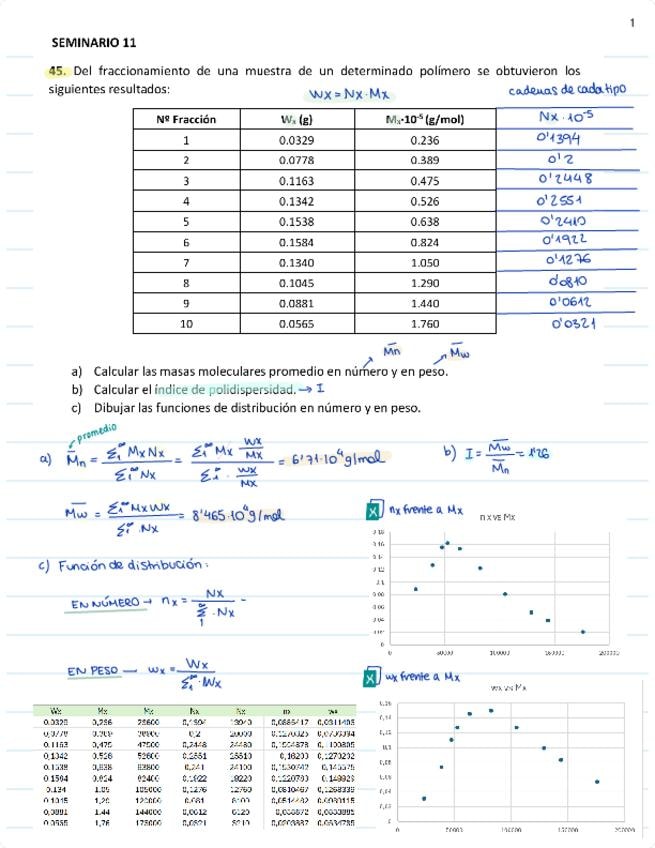 1
SEMINARIO 11
45. Del fraccionamiento de una muestra de un determinado polímero se obtuvieron los
siguientes resultados:
Wx = Nx · Mx
cadenas de cada tipo
Nº Fracción Wₓ (g) Mₓ·10⁻⁵ (g/mol) Nx · 10⁻⁵
1 0.0329 0.236 0'1394
2 0.0778 0.389 0'2
3 0.1163 0.475 0'2448
4 0.1342 0.526 0'2551
5 0.1538 0.638 0'2410
6 0.1584 0.824 0'1922
7 0.1340 1.050 0'1276
8 0.1045 1.290 0'0810
9 0.0881 1.440 0'0612
10 0.0565 1.760 0'0321
M̅n M̅w
a) Calcular las masas moleculares promedio en número y en peso.
b) Calcular el índice de polidispersidad. → I
c) Dibujar las funciones de distribución en número y en peso.
promedio
a) M̅n = Σ₁^∞ Mx Nx / Σ₁^∞ Nx = Σ₁^∞ Mx Wx/Mx / Σ₁^∞ Wx/Mx = 6'71·10⁴ g/mol
b) I = M̅w / M̅n = 1'26
M̅w = Σ₁^∞ Mx Wx / Σ₁^∞ · Nx = 8'465·10⁴ g/mol
X nx frente a Mx
nx vs Mx
c) Función de distribución:
EN NÚMERO → nx = Nx / Σ₁^∞ · Nx =
0 50000 150000 200000
EN PESO — wx = Wx / Σ₁^∞ · Wx
X wx frente a Mx
wx vs Mx
Wx Mx Mx Nx Nx nx wx
0,0329 0,236 23600 0,1394 13940
0,0778 0,389 38900 0,2 20000
0,1163 0,475 47500 0,2448 24480
0,1342 0,526 52600 0,2551 25510
0,1538 0,638 63800 0,241 24100
0,1584 0,824 82400 0,1922 19220
0,134 1,05 105000 0,1276 12760
0,1045 1,29 0,081 8100
0,0881 1,44 144000 0,0612 6120
0,0565 1,76 176000 0,0321 3210
0 50000 100000 150000 200000